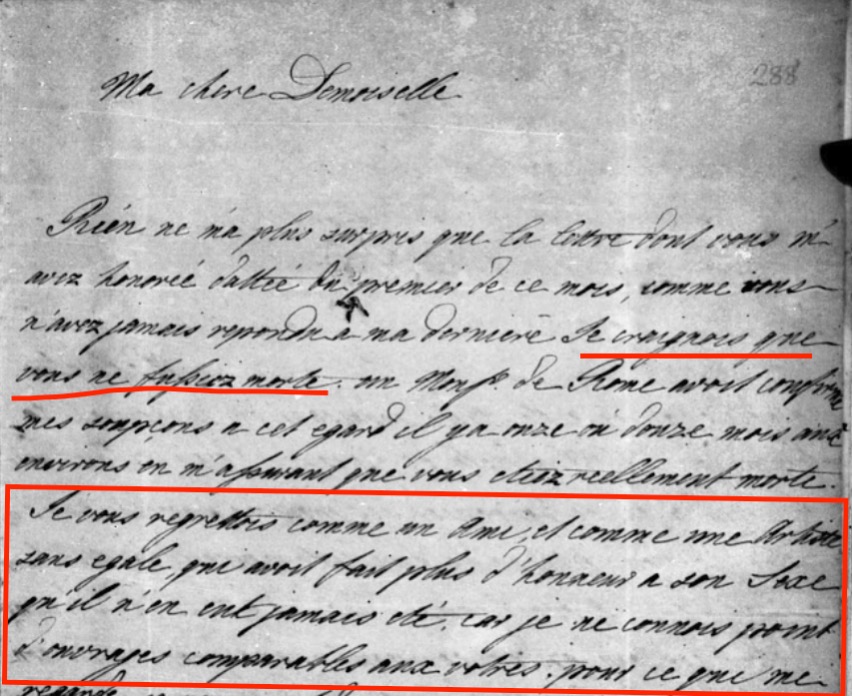 288
Ma chere Demoiselle
Rién ne m'a plus surpris que la lettre dont vous m'-
avez honorié dattée du premier de ce mois, comme vous
n'avez jamais repondu a ma derniere Je craignois que
vous ne fussiez morte. un Monsr. de Rome avoit confirmé
mes soupçons a cet egard il y a onze ou douze mois aux
environs en m'assurant que vous etiez réellement morte.
Je vous regrettois comme un Ami, et comme une Artiste
sans egale, qui avoit fait plus d'honneur a son Sexe
qu'il n'en eut jamais eté. car je ne connois point
d'ouvrages comparables aux votres. pour ce que me
regarde